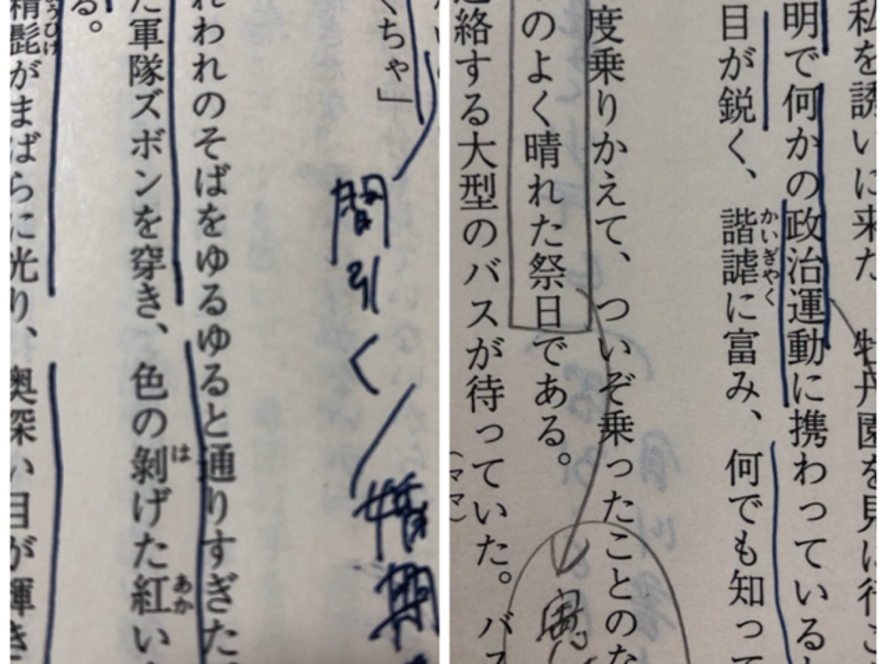 くちゃ」
間引く
れわれのそばをゆるゆると通りすぎた
た軍隊ズボンを穿き、色の剝げた紅い
る。
髭がまばらに光り、奥深い目が輝き
私を誘いに来た 牡丹園を見に行こ
明で何かの政治運動に携わっている
目が鋭く、諧謔に富み、何でも知って
度乗りかえて、ついぞ乗ったことのな
のよく晴れた祭日である。
絡する大型のバスが待っていた。バ